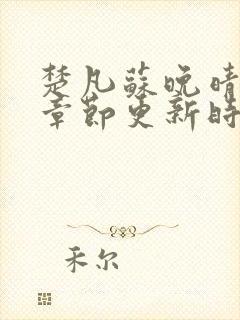 楚凡蘇晚晴
章節更新時
禾尔